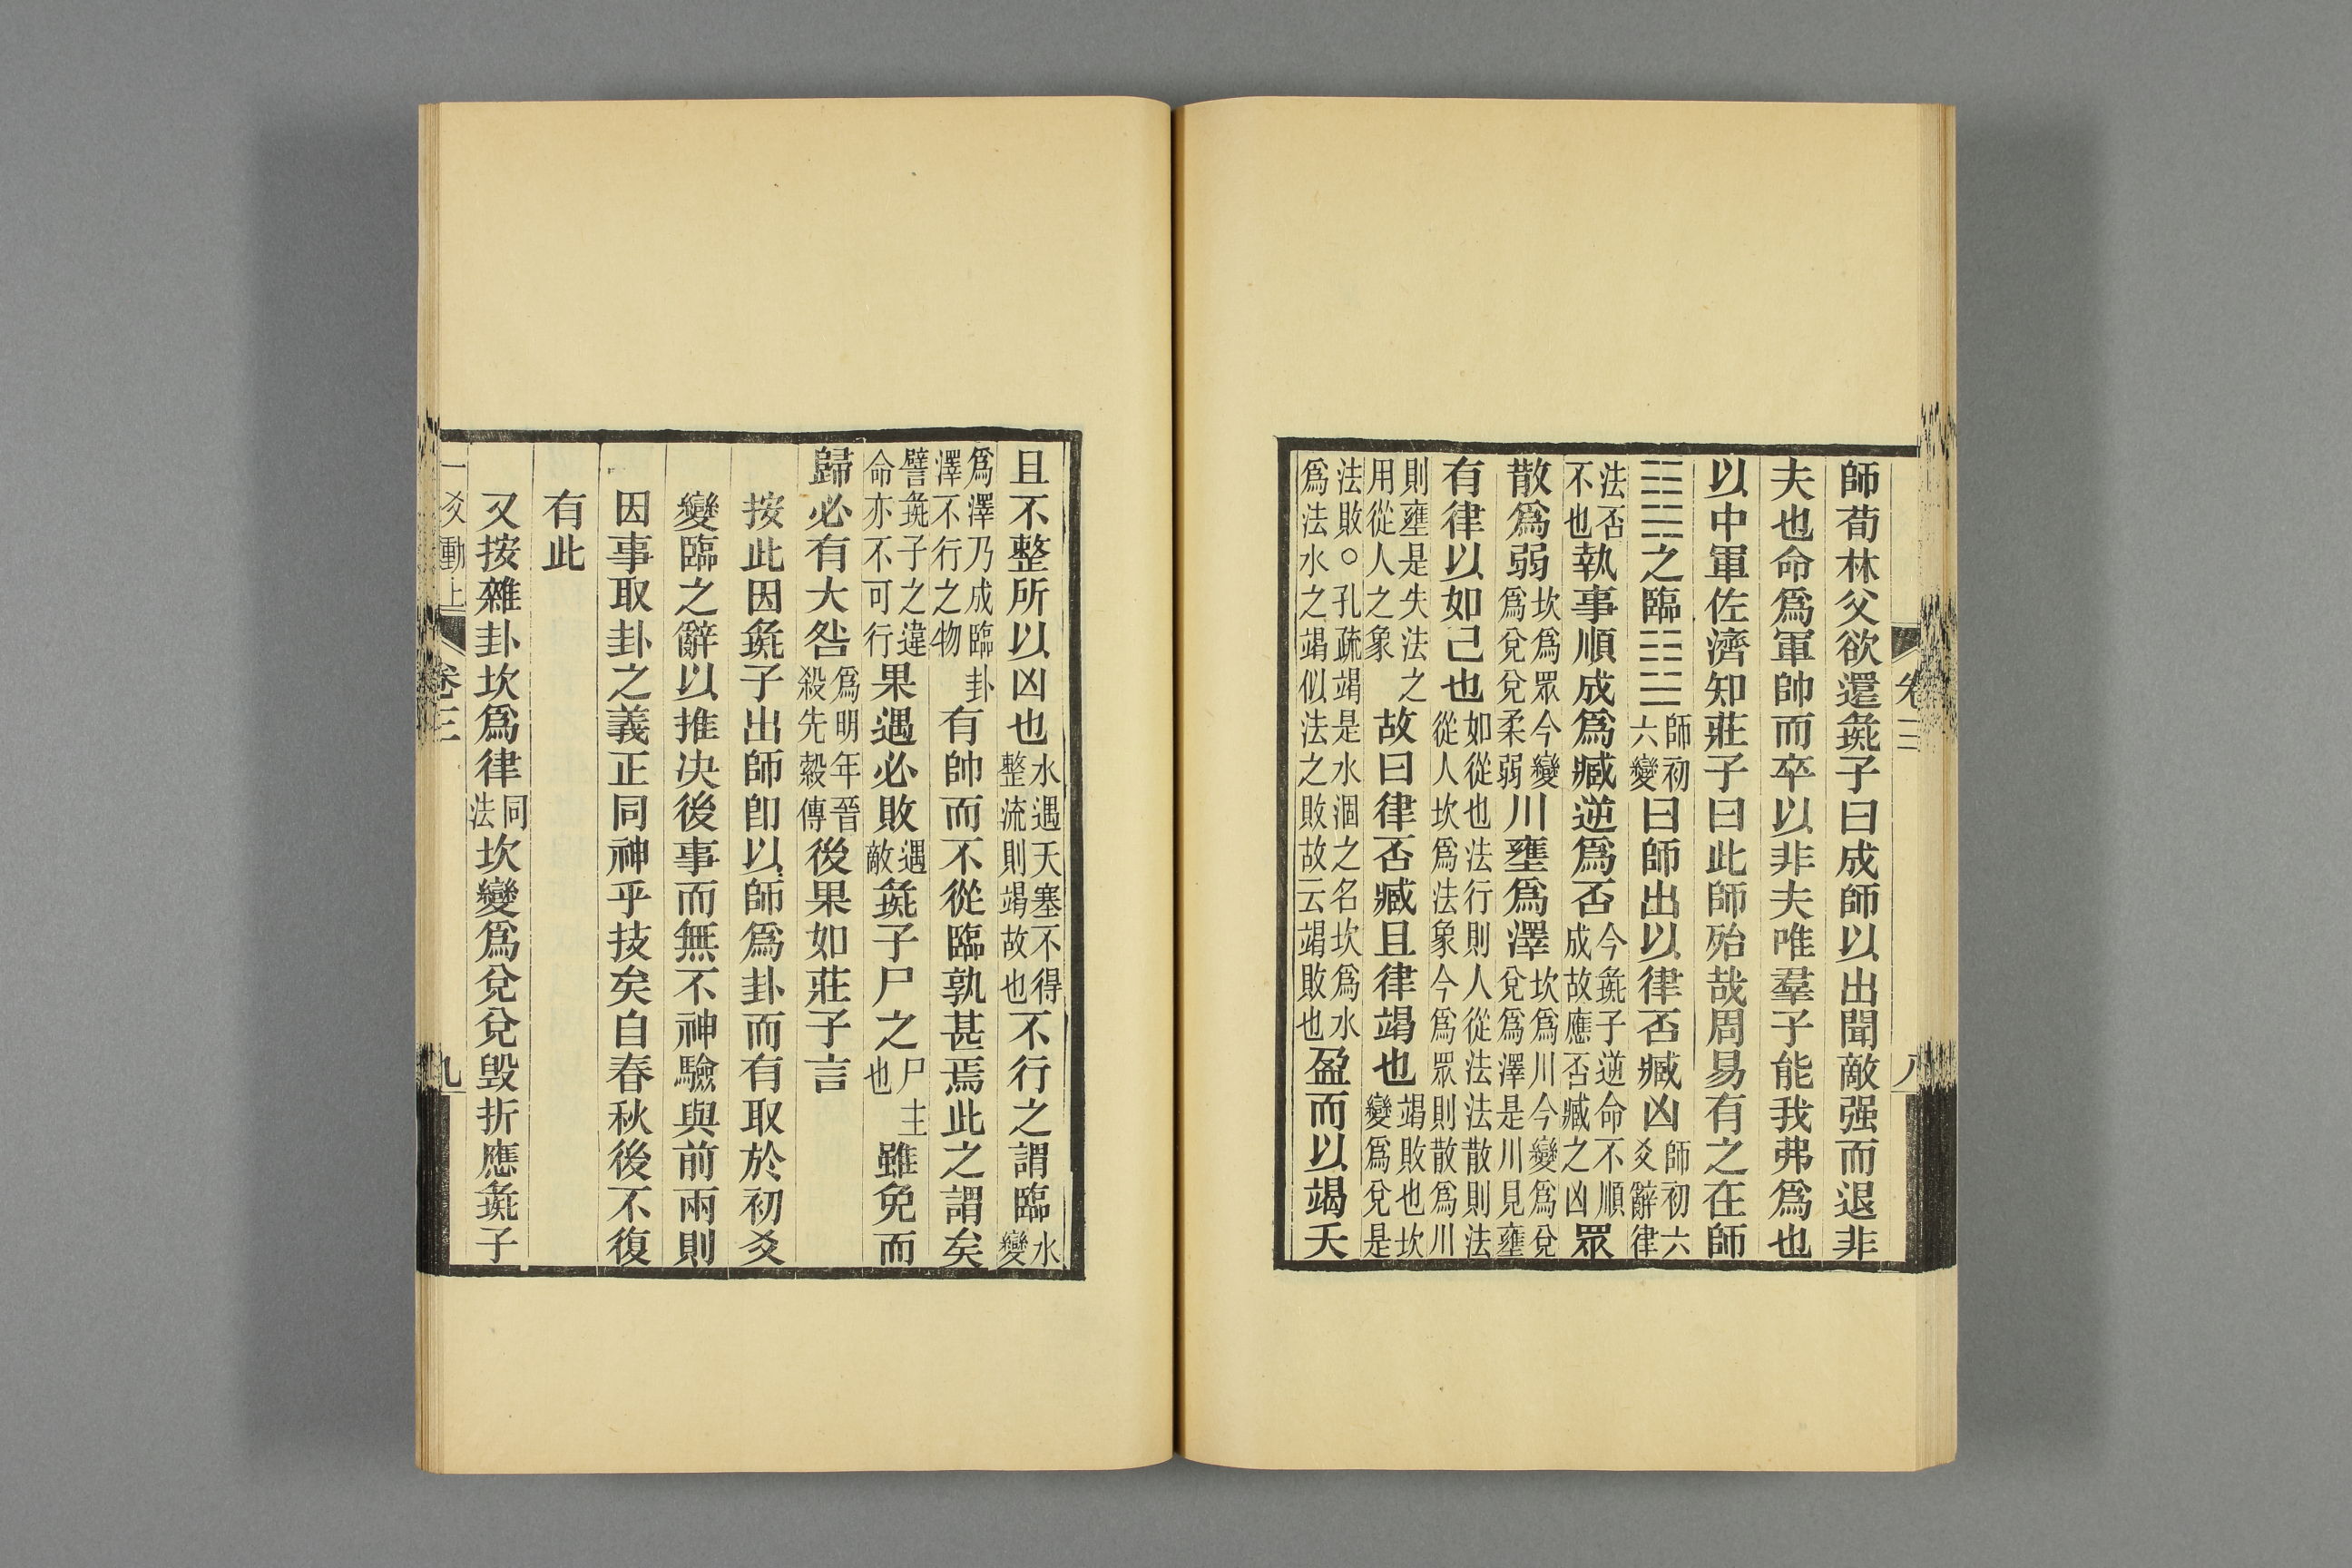 師荀林父欲還彘子曰成師以出聞敵强而退非
夫也命爲軍帥而卒以非夫唯羣子能我弗爲也
以中軍佐濟知莊子曰此師殆哉周易有之在師
之臨師初六變曰師出以律否臧凶師初六爻辭律
法否不也執事順成爲臧逆爲否今彘子逆命不順成故應否臧之凶眾
散爲弱坎爲眾今變爲兌兌柔弱川壅爲澤坎爲川今變爲兌兌爲澤是川見壅
有律以如己也如從也法行則人從法法散則法從人坎爲法象今爲眾則散爲川
則壅是失法之用從人之象故曰律否臧且律竭也竭敗也坎變爲兌是
法敗○孔疏竭是水涸之名坎爲水爲法水之竭似法之敗故云竭敗也盈而以竭夭
卷三
八
且不整所以凶也水遇夭塞不得整流則竭故也不行之謂臨水變
爲澤乃成臨卦澤不行之物有帥而不從臨孰甚焉此之謂矣
譬彘子之違命亦不可行果遇必敗遇敵彘子尸之尸主也雖免而
歸必有大咎爲明年晉殺先縠傳後果如莊子言
按此因彘子出師卽以師爲卦而有取於初爻
變臨之辭以推决後事而無不神驗與前兩則
因事取卦之義正同神乎技矣自春秋後不復
有此
又按雜卦坎爲律同法坎變爲兌兌毀折應彘子
一爻動上
卷三
九